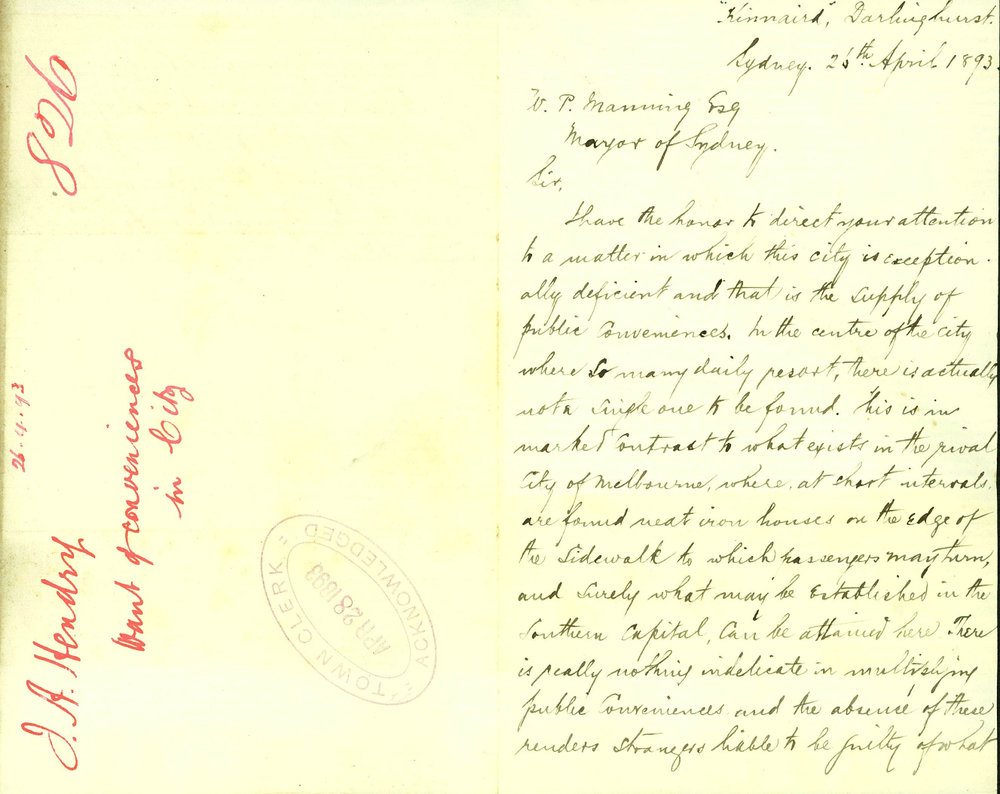 826
26.4.93
J. A. Hendry
Want of conveniences
in City
"TOWN CLERK"
APR 28 1893
ACKNOWLEDGED
"Kinnaird", Darlinghurst.
Sydney. 26th April 1893.
W. P. Manning Esq
Mayor of Sydney.
Sir,
I have the honor to direct your attention
to a matter in which this city is exception-
ally deficient and that is the supply of
public conveniences. In the centre of the city
where so many daily resort, there is actually
not a single one to be found. This is in
marked contrast to what exists in the rival
City of Melbourne, where, at short intervals,
are found neat iron houses on the edge of
the sidewalk to which passengers may turn,
and surely what may be established in the
Southern Capital, can be attained here. There
is really nothing indelicate in multiplying
public conveniences and the absence of these
renders strangers liable to be guilty of what